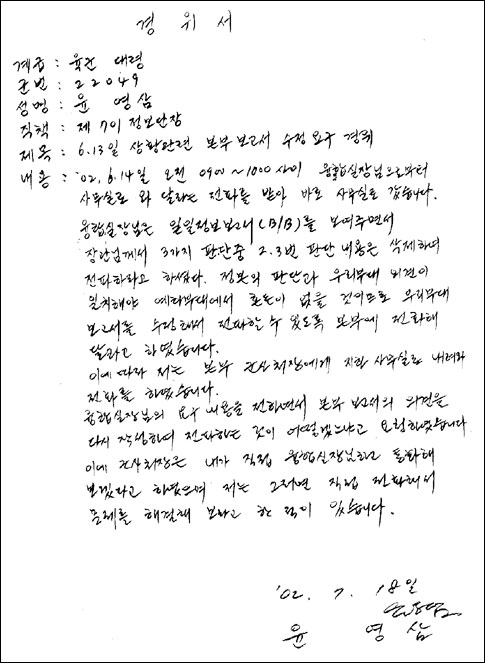 경 위 서
계급 : 육군 대령
군번 : 22049
성명 : 윤 영삼
직책 : 제 701 정보단장
제목 : 6.13일 상황관련 본부 보고서 수정 요구 경위
내용 : '02, 6.14일 오전 0900~1000사이 융합실장님으로부터
사무실로 와 달라는 전화를 받아 바로 사무실로 갔습니다.
융합실장님은 일일정보보고(B/B)를 보여주면서
장관님께서 3가지 판단중 2.3번 판단 내용은 삭제하여
전파하라고 하셨다. 정본의 판단과 우리부대 의견이
일치해야 예하부대에서 혼돈이 없을 것이므로 우리부대
보고서를 수정해서 전파할 수 있도록 본부에 전화해
달라고 하였습니다.
이에 따라 저는 본부 군사처장에게 지하 사무실로 내려와
전화를 하였습니다.
융합실장님의 요구 내용을 전하면서 본부 보고서의 의견을
다시 작성하여 전파하는 것이 어떻겠느냐고 요청하였습니다
이에 군사처장은 내가 직접 융합실장님하고 통화해
보겠다고 하였으며 저는 그러면 직접 전화해서
문제를 해결해 보라고 한 적이 있습니다.
'02. 7. 18일
윤 영삼